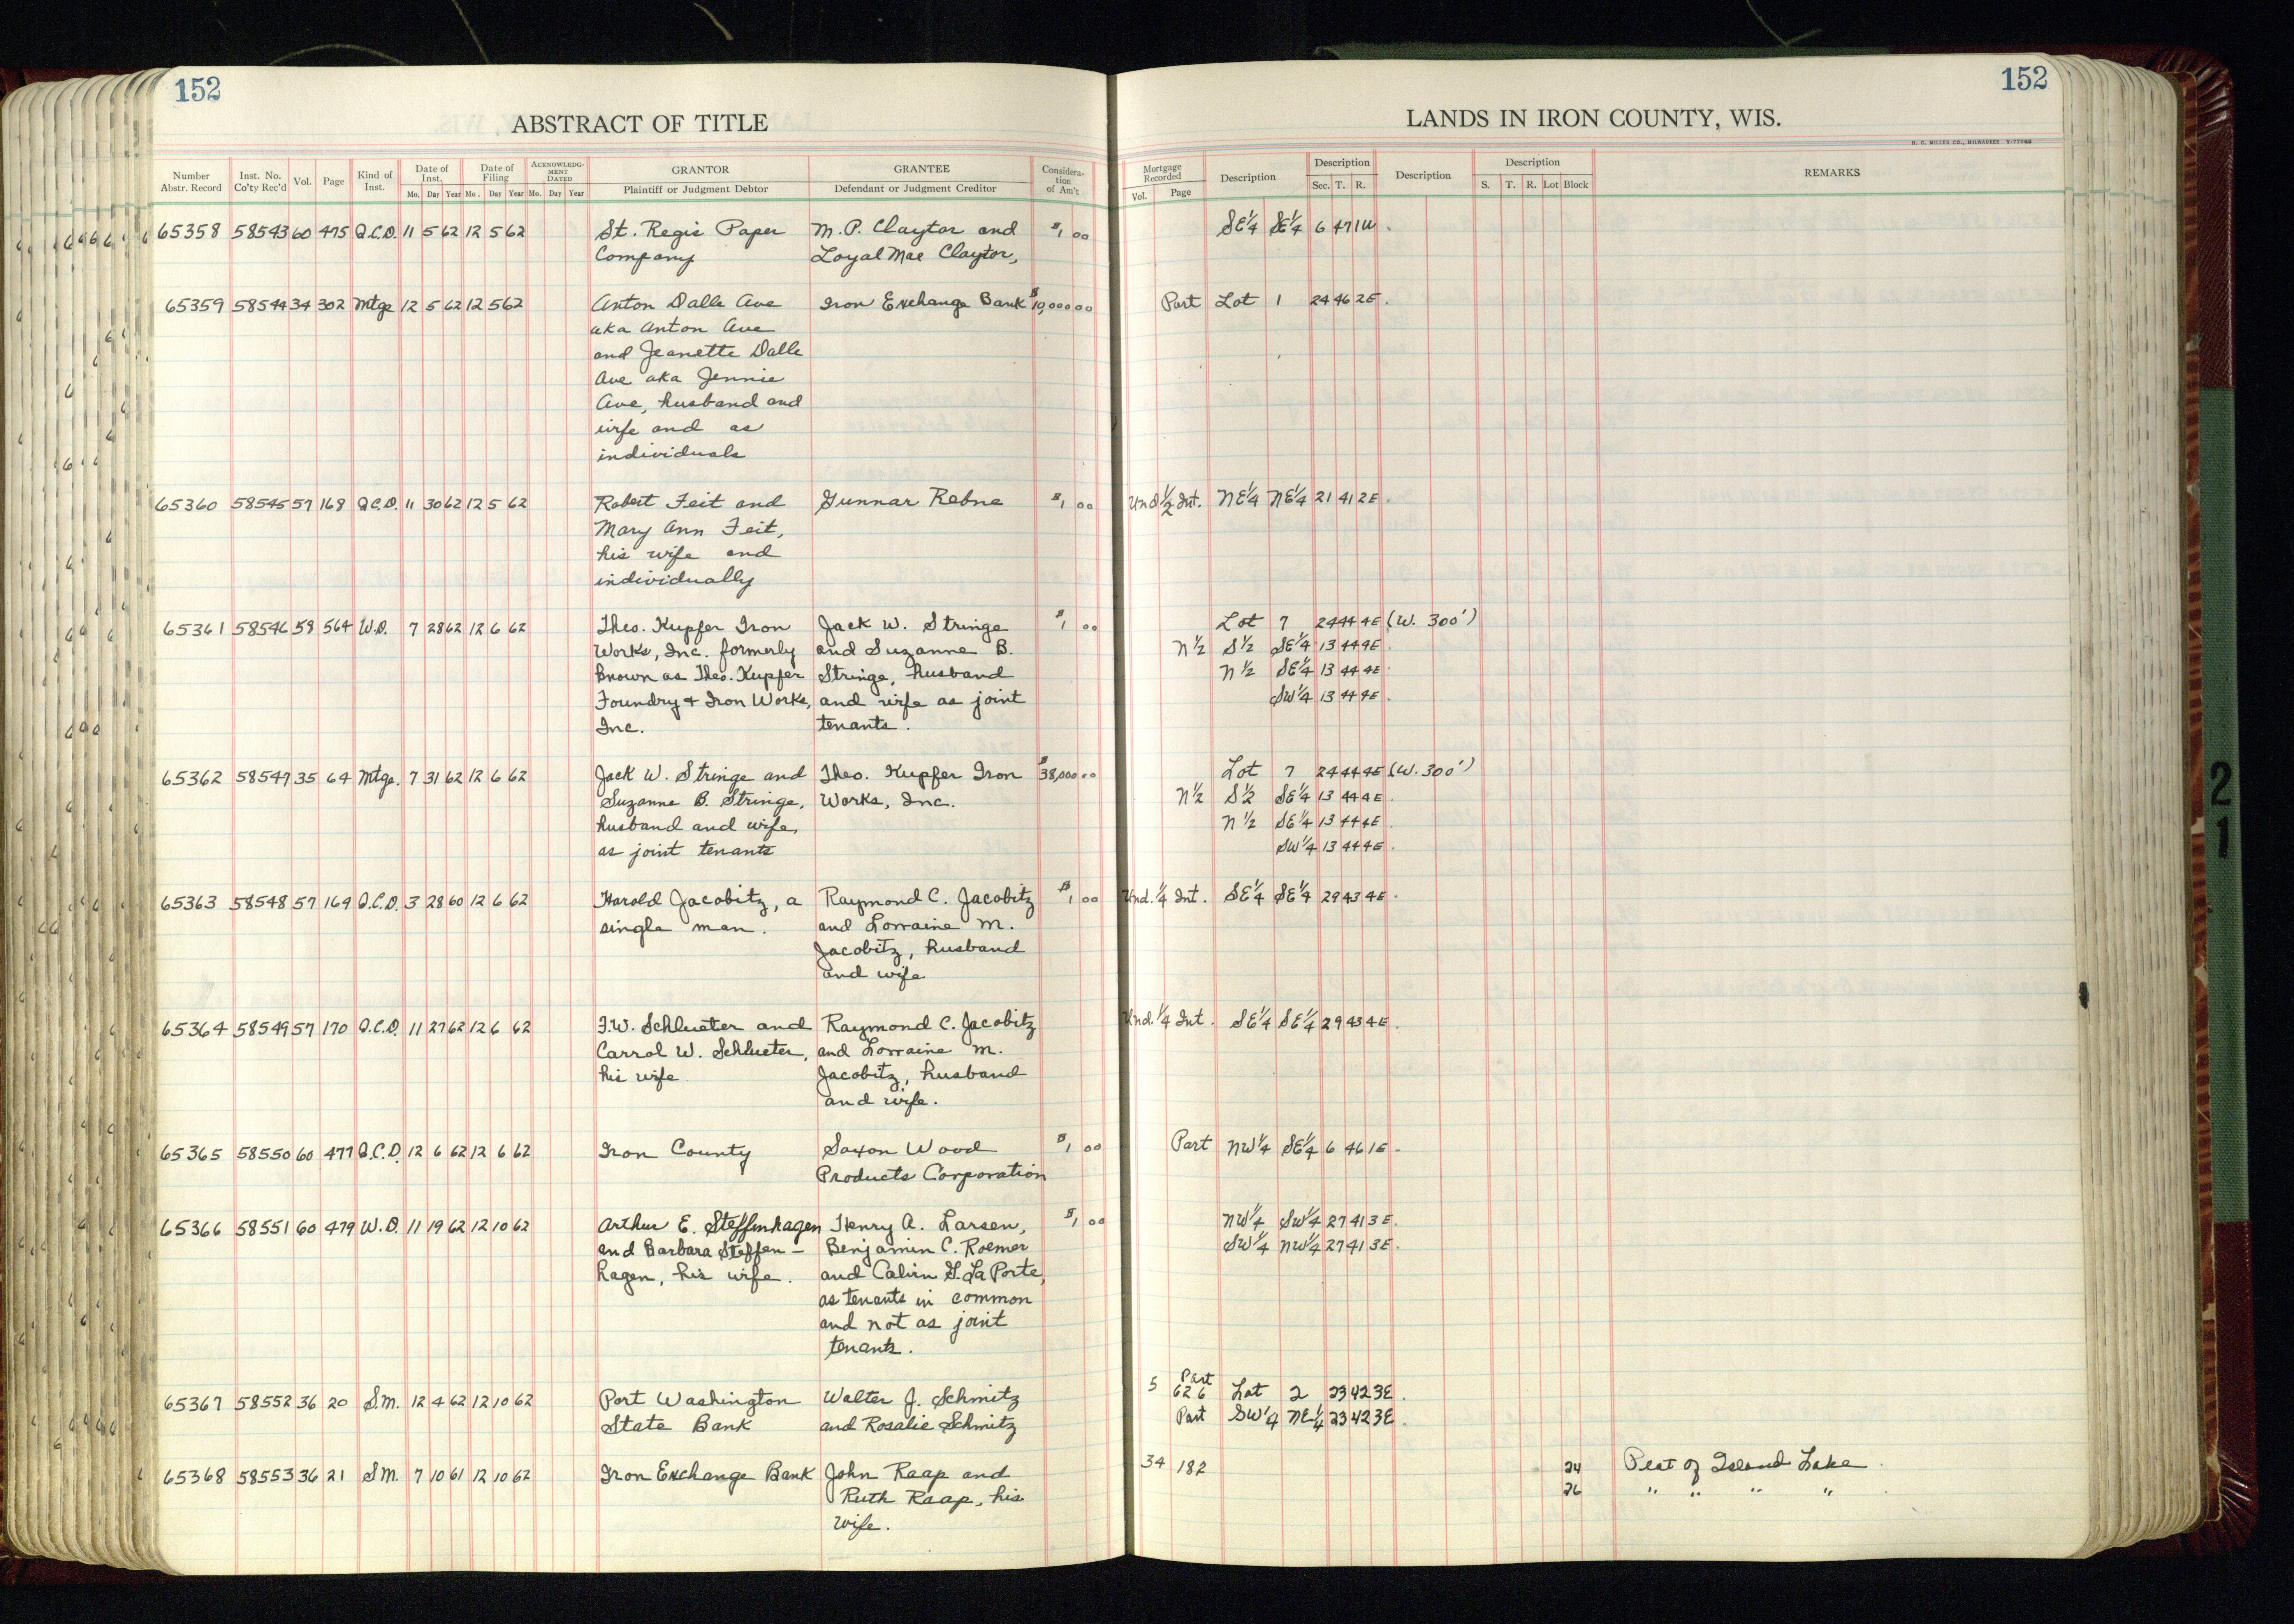 152
152
ABSTRACT OF TITLE
LANDS IN IRON COUNTY, WIS.
H. C. MILLER CO., MILWAUKEE
Number Abstr. Record Inst. No. Co'ty Rec'd Vol. Page Kind of Inst. Date of Inst. Mo. Day Year Date of Filing Mo. Day Year ACKNOWLEDGMENT DATED Mo. Day Year GRANTOR Plaintiff or Judgment Debtor GRANTEE Defendant or Judgment Creditor Consideration of Am't Mortgage Recorded Vol. Page Description Description Sec. T. R. Description Description S. T. R. Lot Block REMARKS
65358 58543 60 475 Q.C.D. 11 5 62 12 5 62 St. Regis Paper M. P. Claytor and $1 00 SE¼ SE¼ 6 47 1W.
Company Loyal Mae Claytor,
65359 58544 34 302 Mtge 12 5 62 12 5 62 Anton Dalle Ave Iron Exchange Bank $10,000 00 Part Lot 1 24 46 2E.
aka Anton Ave
and Jeanette Dalle
Ave aka Jennie
Ave, husband and
wife and as
individuals
65360 58545 57 168 Q.C.D. 11 30 62 12 5 62 Robert Feit and Gunnar Rebne $1 00 Und ½ Int. NE¼ NE¼ 21 41 2E.
Mary Ann Feit,
his wife and
individually
65361 58546 58 564 W.D. 7 28 62 12 6 62 Theo. Kupfer Iron Jack W. Stringe $1 00 Lot 7 24 44 4E (W. 300')
Works, Inc. formerly and Suzanne B. N½ S½ SE¼ 13 44 4E.
known as Theo. Kupfer Stringe, husband N½ SE¼ 13 44 4E.
Foundry + Iron Works, and wife as joint SW¼ 13 44 4E.
Inc. tenants.
65362 58547 35 64 Mtge. 7 31 62 12 6 62 Jack W. Stringe and Theo. Kupfer Iron $38,000 00 Lot 7 24 44 4E (W. 300')
Suzanne B. Stringe, Works, Inc. N½ S½ SE¼ 13 44 4E.
husband and wife, N½ SE¼ 13 44 4E.
as joint tenants SW¼ 13 44 4E.
65363 58548 57 169 Q.C.D. 3 28 60 12 6 62 Harold Jacobitz, a Raymond C. Jacobitz $1 00 Und. ¼ Int. SE¼ SE¼ 29 43 4E.
single man. and Lorraine M.
Jacobitz, husband
and wife
65364 58549 57 170 Q.C.D. 11 27 62 12 6 62 F.W. Schlueter and Raymond C. Jacobitz Und. ¼ Int. SE¼ SE¼ 29 43 4E.
Carrol W. Schlueter, and Lorraine M.
his wife Jacobitz, husband
and wife.
65365 58550 60 477 Q.C.D. 12 6 62 12 6 62 Iron County Saxon Wood $1 00 Part NW¼ SE¼ 6 46 1E.
Products Corporation
65366 58551 60 479 W.D. 11 19 62 12 10 62 Arthur E. Steffenhagen Henry A. Larsen, $1 00 NW¼ SW¼ 27 41 3E.
and Barbara Steffen- Benjamin C. Roemer SW¼ NW¼ 27 41 3E.
hagen, his wife. and Calvin G. La Porte,
as tenants in common
and not as joint
tenants.
65367 58552 36 20 S.M. 12 4 62 12 10 62 Port Washington Walter J. Schmitz 5 626 Part Lot 2 23 42 3E.
State Bank and Rosalie Schmitz Part SW¼ NE¼ 23 42 3E.
65368 58553 36 21 S.M. 7 10 61 12 10 62 Iron Exchange Bank John Raap and 34 182 24 Plat of Island Lake.
Ruth Raap, his 26 " " " "
wife.
21